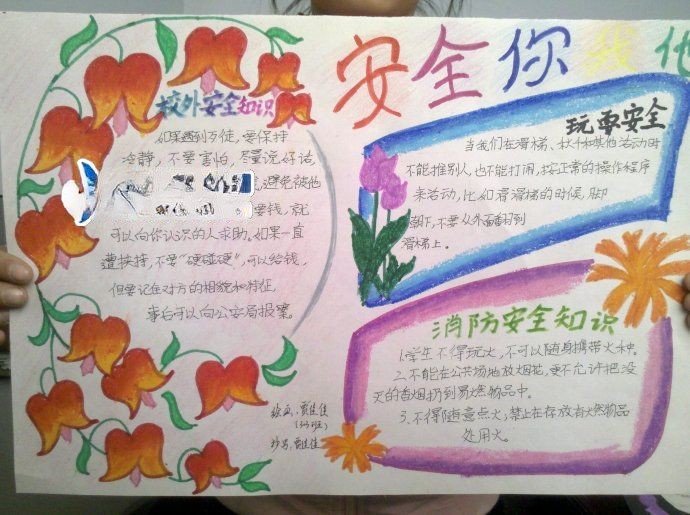 安全你我他
校外安全知识
如果遇到歹徒，要保持
冷静，不要害怕，尽量说好话，
避免被他
要钱，就
可以向你认识的人求助。如果一直
遭挟持，不要“硬碰硬”，可以给钱，
但要记住对方的相貌和特征，
事后可以向公安局报案。
玩耍安全
当我们在滑梯、秋千和其他活动时
不能推别人，也不能打闹，按正常的操作程序
来活动，比如滑滑梯的时候，脚
朝下，不要从外面翻到
滑梯上。
消防安全知识
1.学生不得玩火，不可以随身携带火种。
2.不能在公共场地放烟花，更不允许把没
灭的香烟扔到易燃物品中。
3.不得随意点火，禁止在存放有燃物品
处用火。